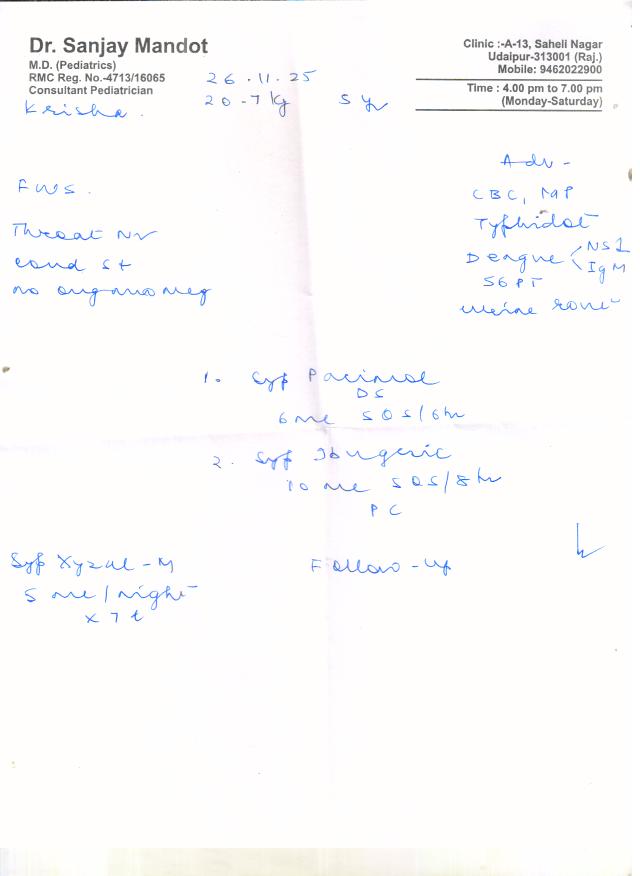 Dr. Sanjay Mandot
M.D. (Pediatrics)
RMC Reg. No.-4713/16065
Consultant Pediatrician
Clinic :-A-13, Saheli Nagar
Udaipur-313001 (Raj.)
Mobile: 9462022900
Time : 4.00 pm to 7.00 pm
(Monday-Saturday)
26.11.25
20.7 kg 5 y
Krisha.
FWS.
Throat NV
cond st
no organomeg
Adv -
CBC, MP
Typhidot
Dengue NS1
IgM
SGPT
urine
1. Syp Pacimol
DS
6 ml SOS/6hr
2. Syp Ibugeric
10 ml SOS/8hr
PC
Syp Xyzal-M
5 ml/night
x 7
Follow-up